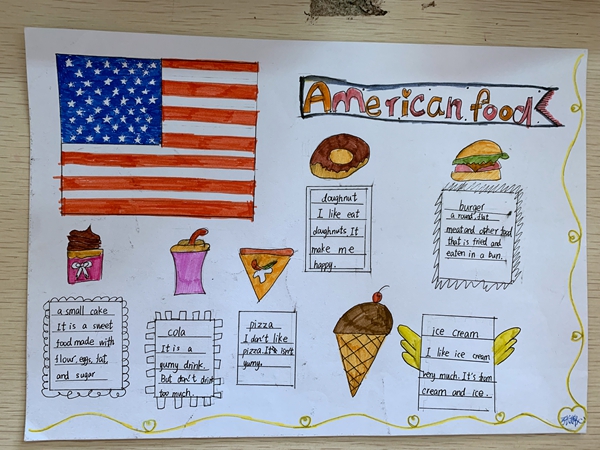 American food
doughnut
I like eat
doughnuts. It
make me
happy.
burger
a round, flat
meat and other food
that is fried and
eaten in a bun.
a small cake
It is a sweet
food made with
flour, eggs, fat,
and sugar
cola
It is a
yumy drink.
But don't drink
too much.
pizza
I don't like
pizza. It's isn't
yumy.
ice cream
I like ice cream
very much. It's from
cream and ice.